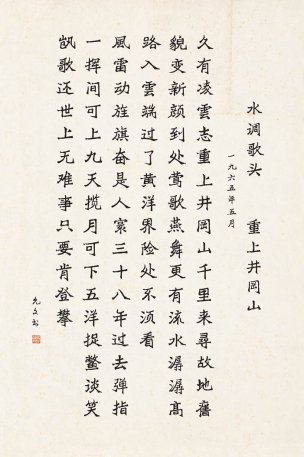 水调歌头　重上井冈山
一九六五年五月
久有凌雲志重上井冈山千里来尋故地舊
貌变新颜到处莺歌燕舞更有流水潺潺高
路入雲端过了黄洋界险处不须看
風雷动旌旗奋是人寰三十八年过去弹指
一挥间可上九天揽月可下五洋捉鳖谈笑
凯歌还世上无难事只要肯登攀